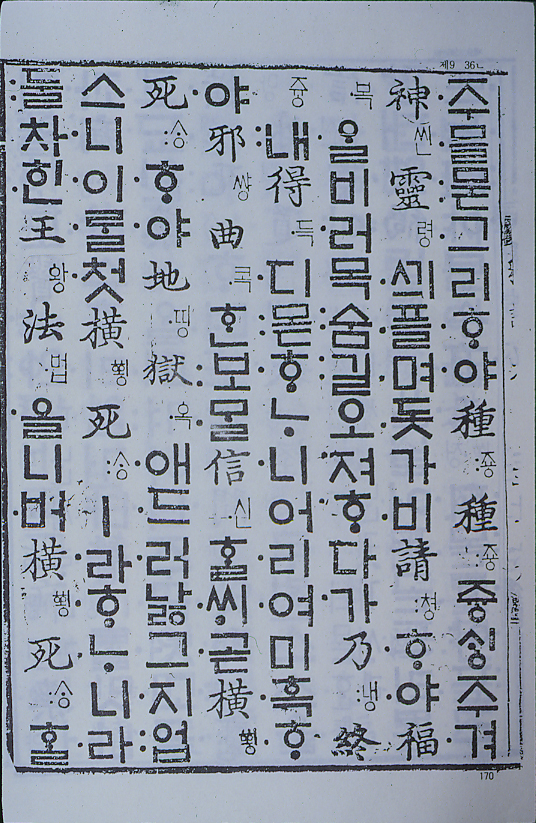 제9 36ㄴ
주믈묻그리ᄒᆞ야種죵種죵즁ᄉᆡᆼ주겨
神씬靈령ᄭᅴ플며돗가비請쳥ᄒᆞ야福
복올비러목숨길오져ᄒᆞ다가乃냉終
즁내得득디몯ᄒᆞᄂᆞ니어리여미혹ᄒᆞ
야邪썅曲콕ᄒᆞᆫ보ᄆᆞᆯ信신ᄒᆞᆯᄊᆡ곧橫ᅘᅬᆼ
死ᄉᆞᆼᄒᆞ야地띵獄옥애드러낧그지업
스니이ᄅᆞᆯ첫橫ᅘᅬᆼ死ᄉᆞᆼㅣ라ᄒᆞᄂᆞ니라
둘차힌王왕法법을니버橫ᅘᅬᆼ死ᄉᆞᆼᄒᆞᆯ
170